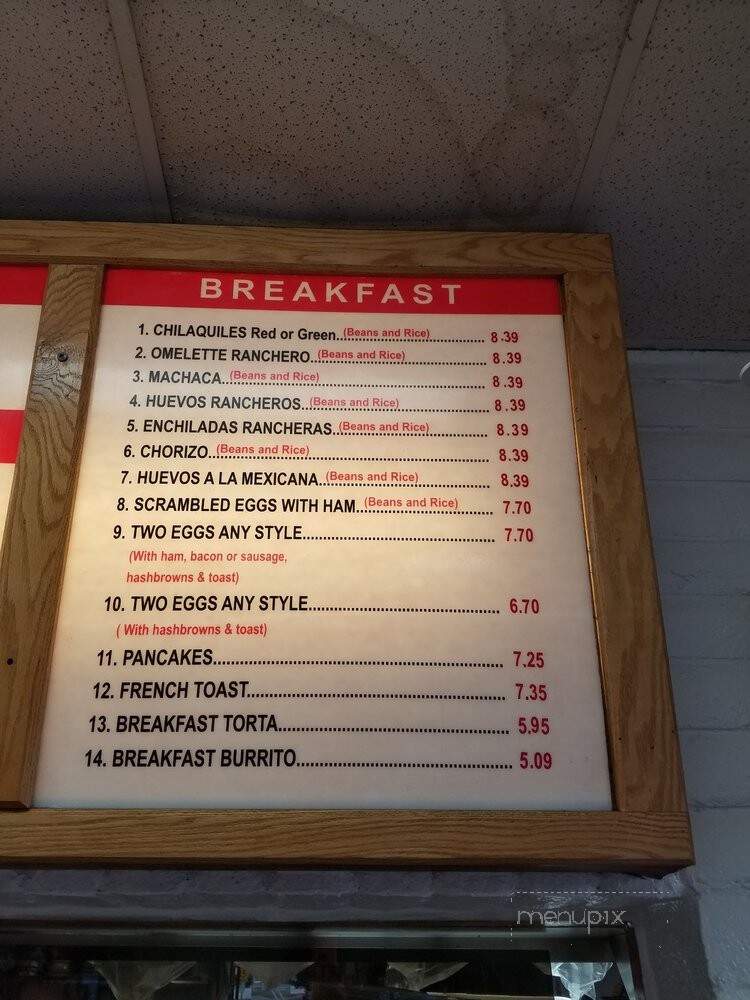 BREAKFAST
1. CHILAQUILES Red or Green..(Beans and Rice)........................ 8.39
2. OMELETTE RANCHERO..(Beans and Rice)........................ 8.39
3. MACHACA..(Beans and Rice)........................ 8.39
4. HUEVOS RANCHEROS..(Beans and Rice)........................ 8.39
5. ENCHILADAS RANCHERAS.(Beans and Rice)........................ 8.39
6. CHORIZO..(Beans and Rice)........................ 8.39
7. HUEVOS A LA MEXICANA..(Beans and Rice)........................ 8.39
8. SCRAMBLED EGGS WITH HAM..(Beans and Rice)........................ 7.70
9. TWO EGGS ANY STYLE........................ 7.70
(With ham, bacon or sausage,
hashbrowns & toast)
10. TWO EGGS ANY STYLE........................ 6.70
( With hashbrowns & toast)
11. PANCAKES........................ 7.25
12. FRENCH TOAST........................ 7.35
13. BREAKFAST TORTA........................ 5.95
14. BREAKFAST BURRITO........................ 5.09
menupix